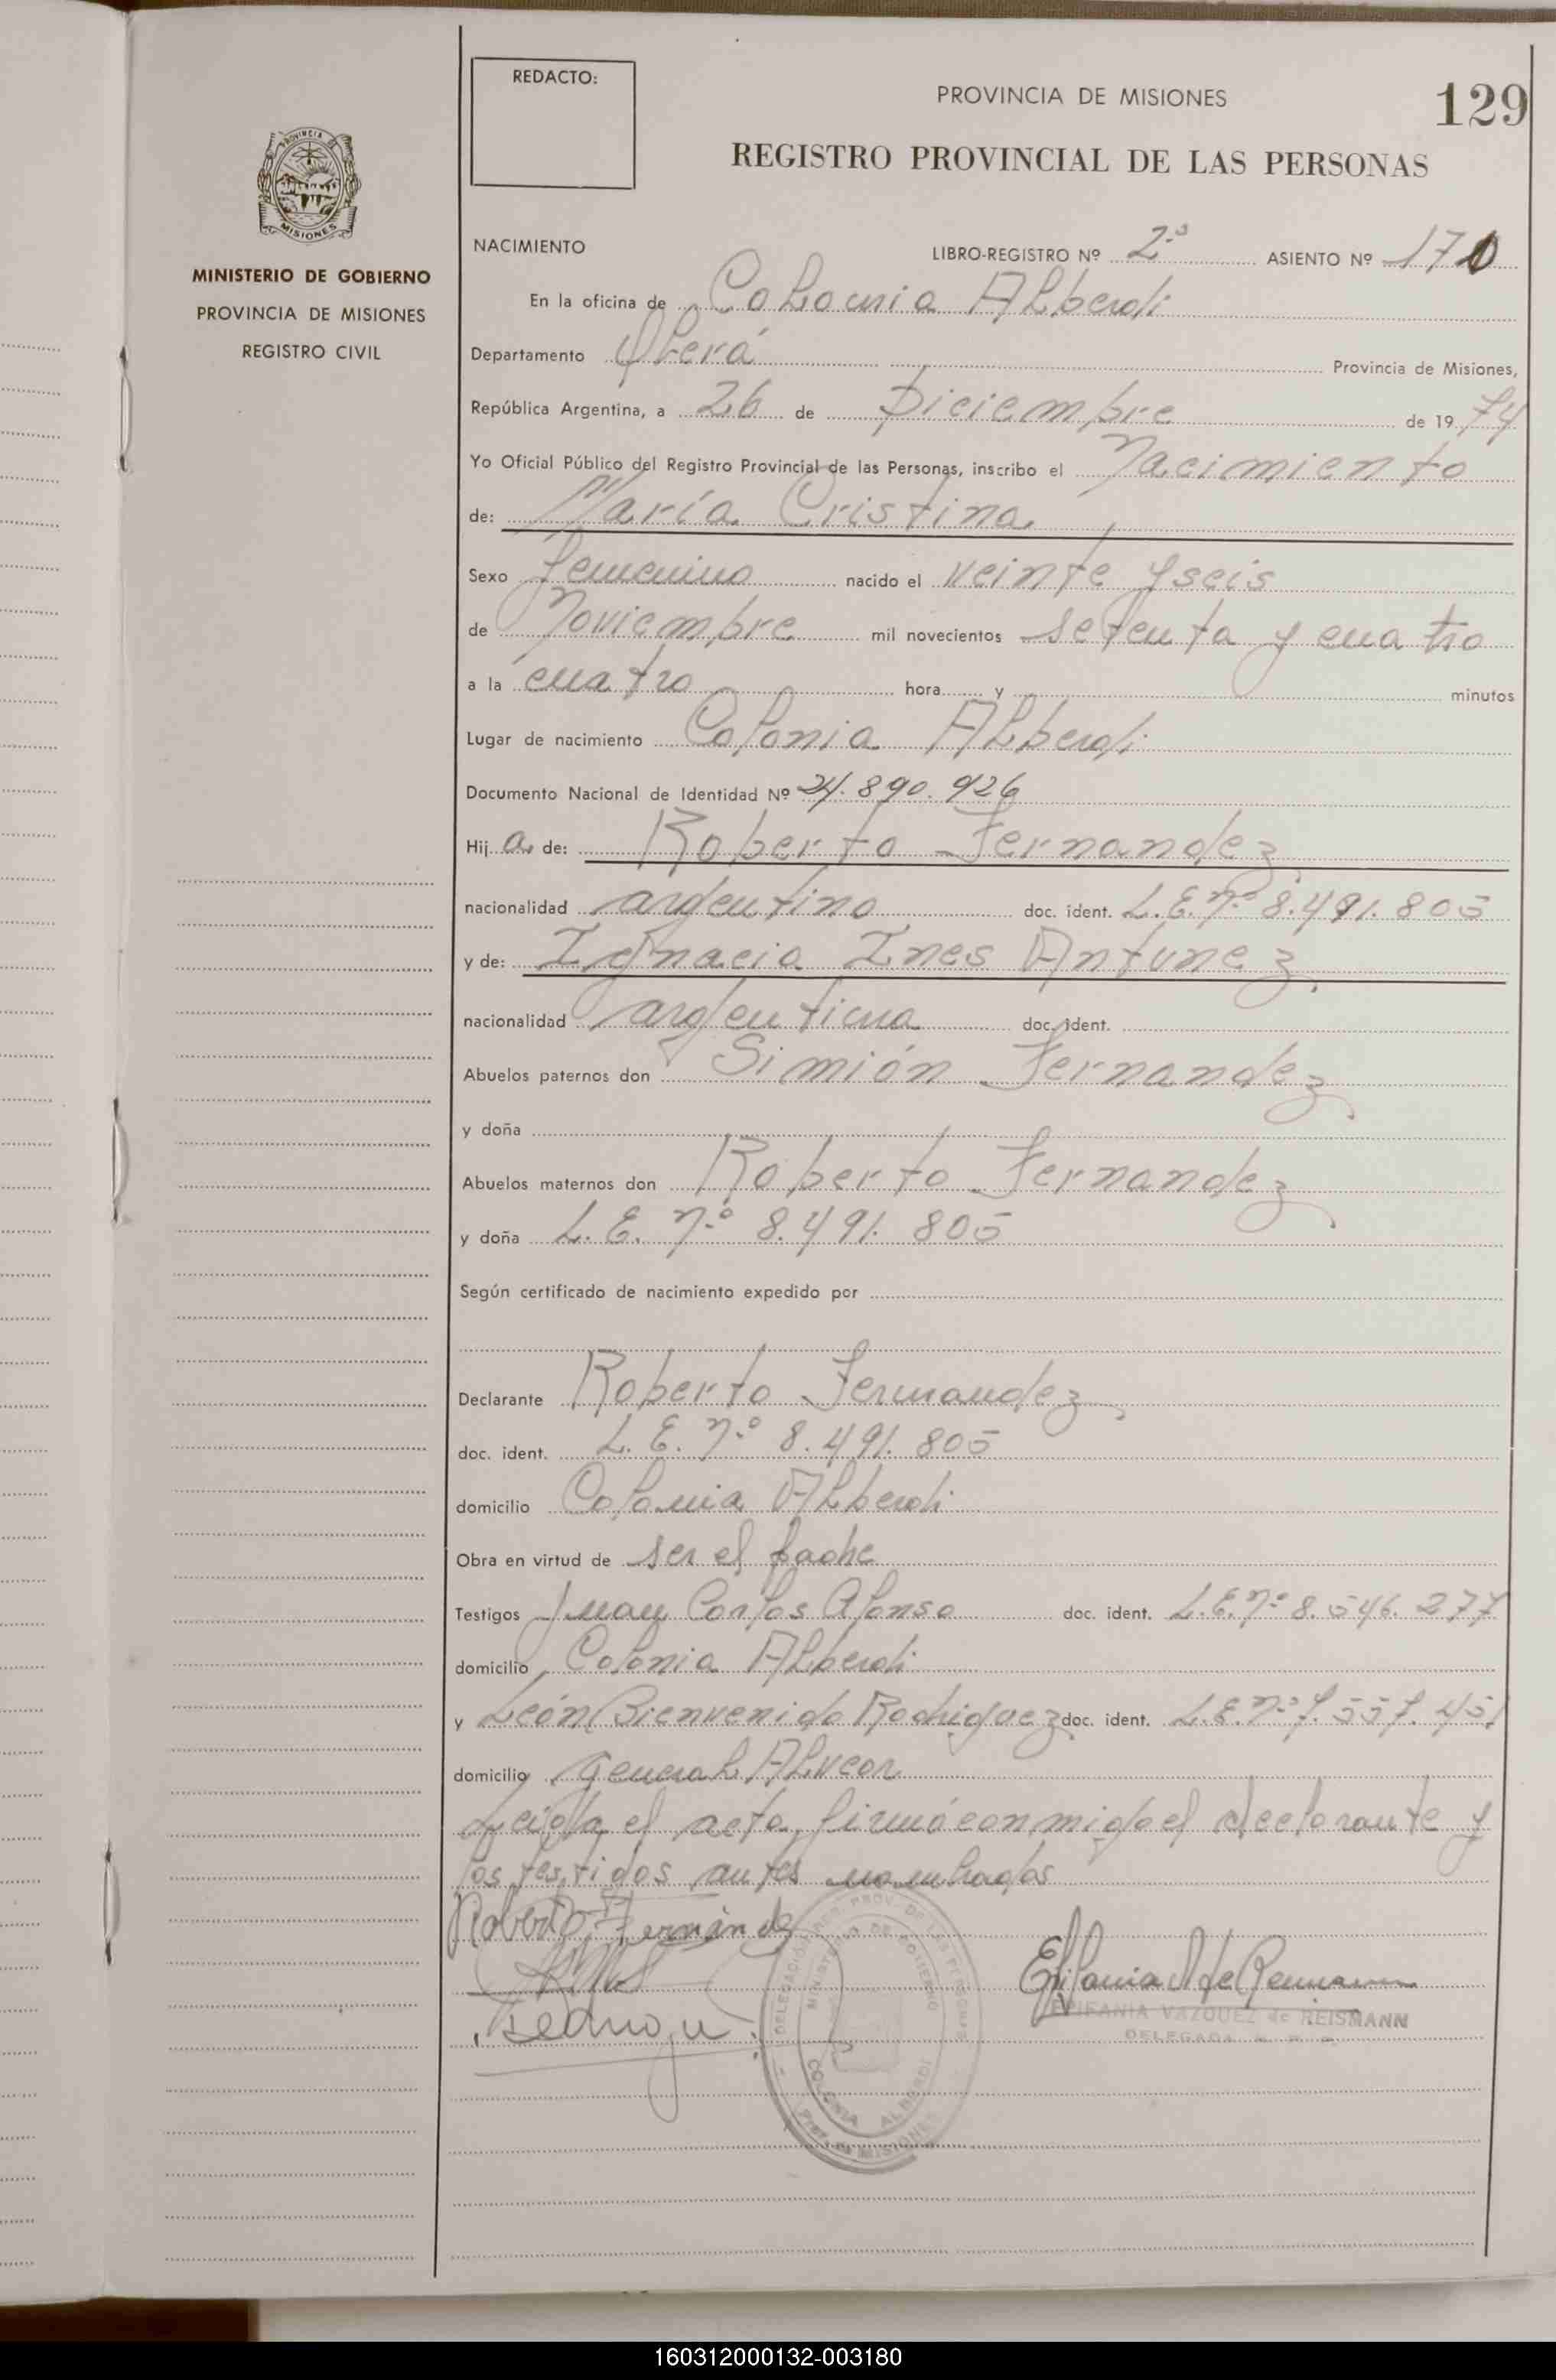 REDACTO:
PROVINCIA DE MISIONES
129
REGISTRO PROVINCIAL DE LAS PERSONAS
PROVINCIA
MISIONES
MINISTERIO DE GOBIERNO
PROVINCIA DE MISIONES
REGISTRO CIVIL
NACIMIENTO LIBRO-REGISTRO Nº 2º ASIENTO Nº 170
En la oficina de Colonia Alberdi
Departamento Oberá Provincia de Misiones,
República Argentina, a 26 de Diciembre de 1974
Yo Oficial Público del Registro Provincial de las Personas, inscribo el Nacimiento
de: María Cristina
Sexo femenino nacido el veinte y seis
de Noviembre mil novecientos setenta y cuatro
a la cuatro hora y minutos
Lugar de nacimiento Colonia Alberdi
Documento Nacional de Identidad Nº 24.890.926
Hija de: Roberto Fernandez
nacionalidad argentino doc. ident. L.E. nº 8.491.805
y de: Ignacia Ines Antunez
nacionalidad argentina doc. ident.
Abuelos paternos don Simión Fernandez
y doña
Abuelos maternos don Roberto Fernandez
y doña L.E. nº 8.491.805
Según certificado de nacimiento expedido por
Declarante Roberto Fernandez
doc. ident. L.E. nº 8.491.805
domicilio Colonia Alberdi
Obra en virtud de ser el padre
Testigos Juan Carlos Alonso doc. ident. L.E. nº 8.546.277
domicilio Colonia Alberdi
y León Bienvenido Rodriguez doc. ident. L.E. nº 7.557.451
domicilio General Alvear
Leida el acta, firmó conmigo el declarante y
los testigos antes nombrados
Roberto Fernández
Epifania V de Reismann
EPIFANIA VAZQUEZ de REISMANN
DELEGADA
DELEGACIÓN PROV. DE LAS PERSONAS
MINISTERIO DE GOBIERNO
COLONIA ALBERDI
MISIONES
160312000132-003180